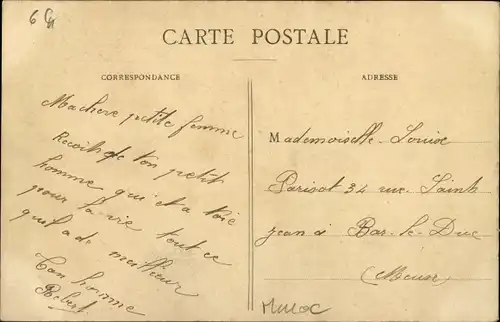 CARTE POSTALE
CORRESPONDANCE
Machere petite femme
Recoit de ton petit
homme qui et a toie
pour la vie tout ce
quil a de meilleur
Ton homme
Bebert
ADRESSE
Mademoiselle Louise
Parisot 34 rue Saint
jean a Bar-le-Duc
(Meuse)